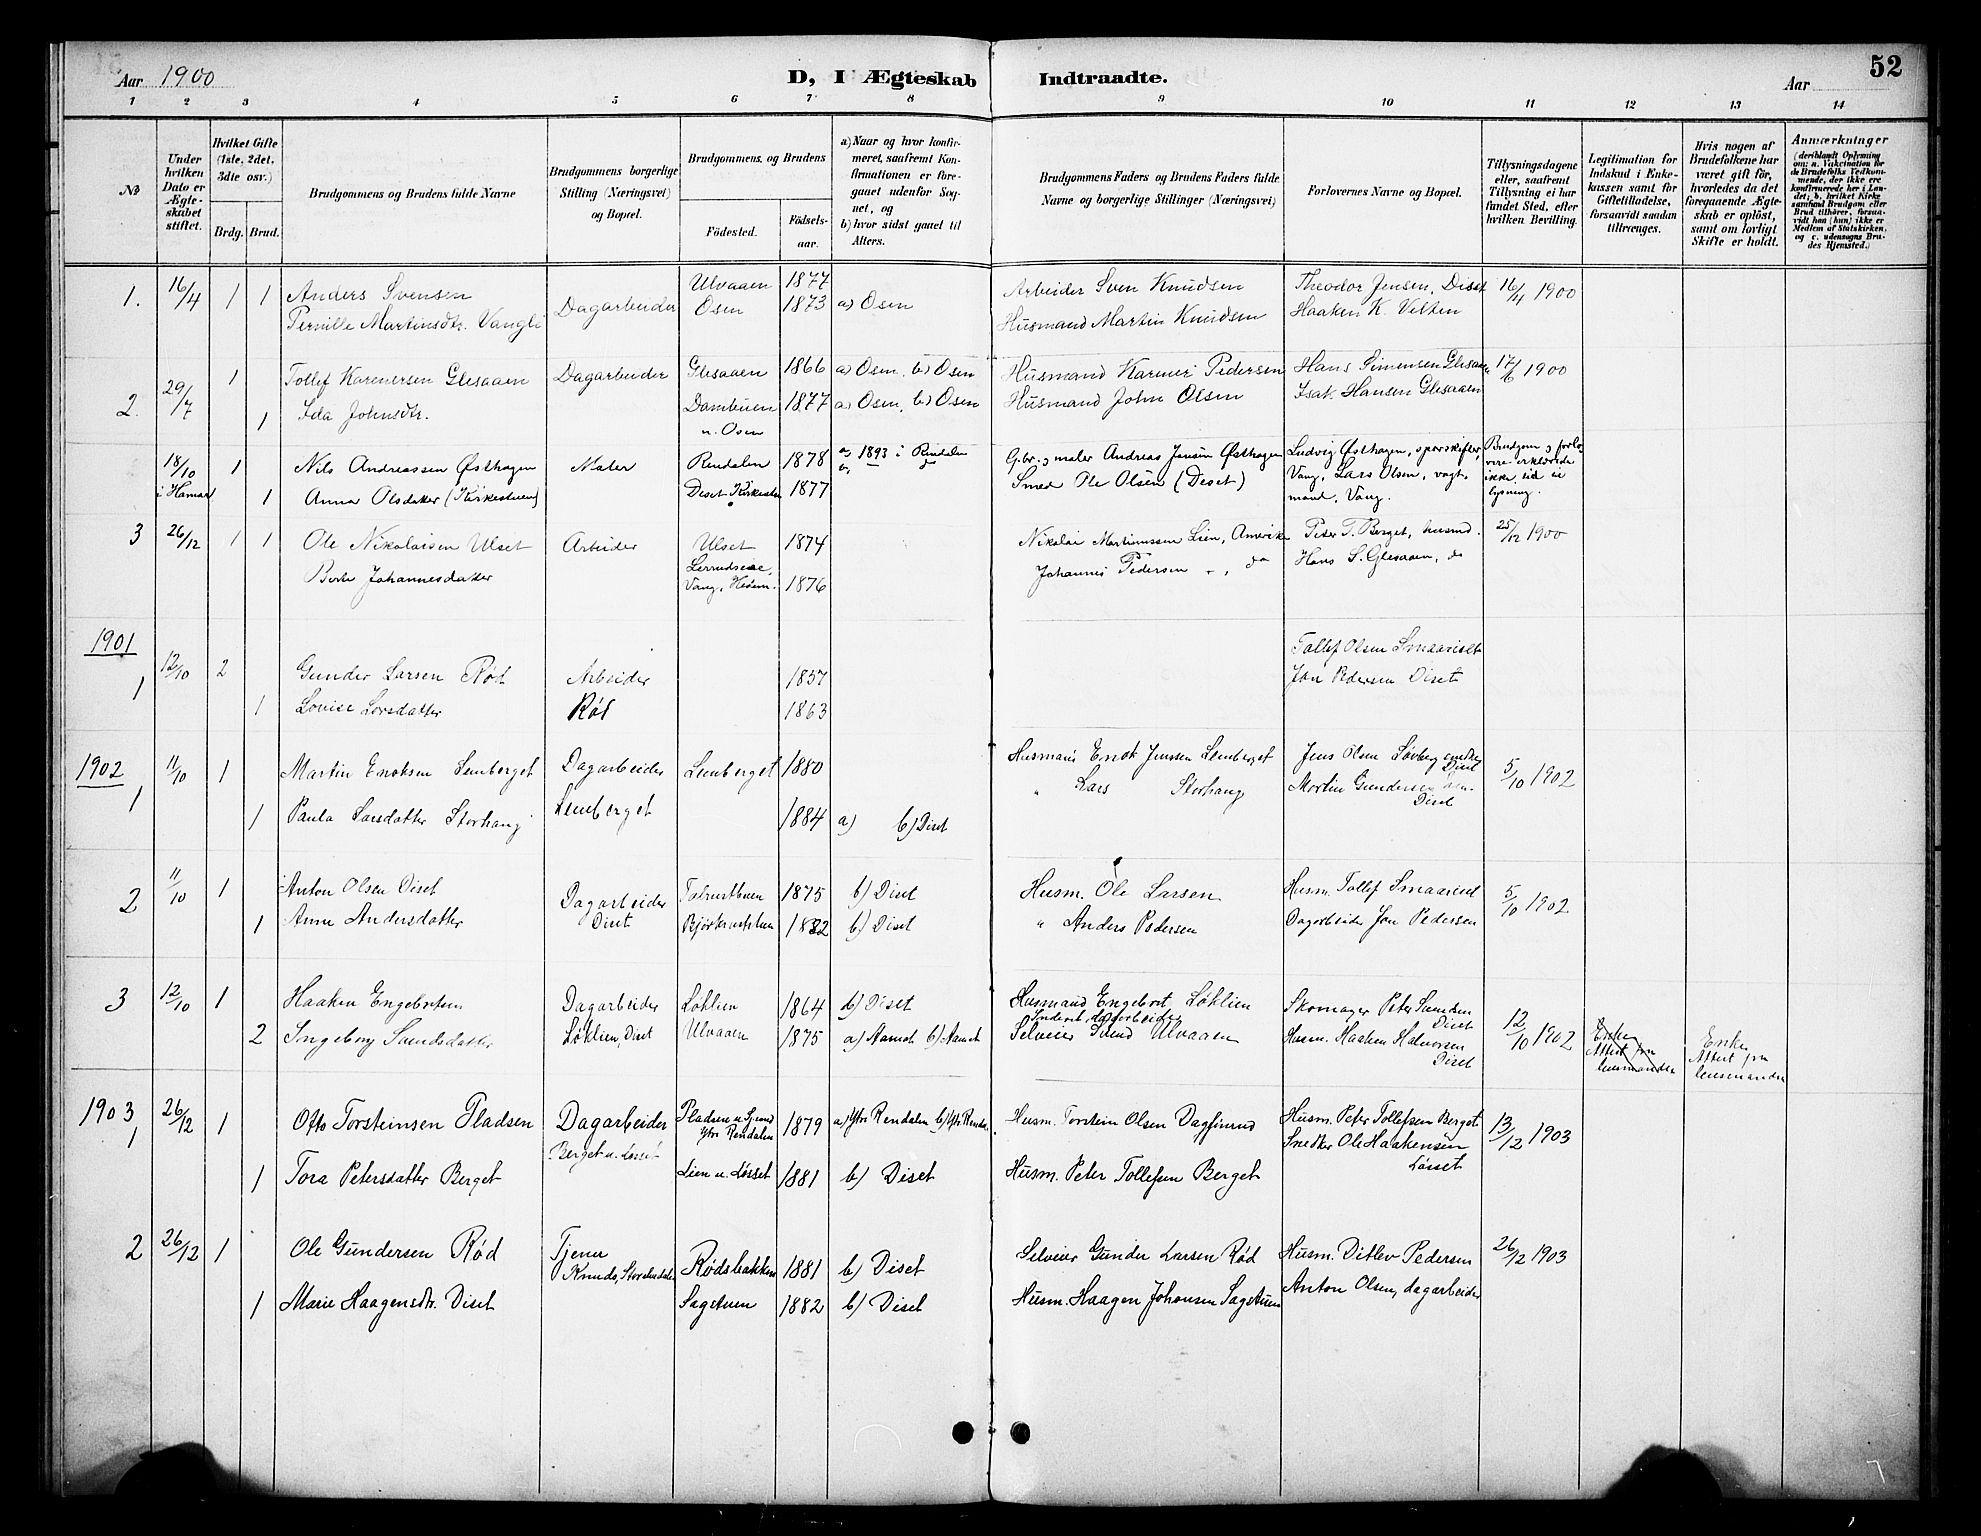 Aar 1900
D, I Ægteskab Indtraadte.
Aar
52
1 2 3 4 5 6 7 8 9 10 11 12 13 14
No
Under hvilken Dato er Ægteskabet stiftet.
Hvilket Gifte (1ste, 2det, 3die osv.)
Brdg. Brud.
Brudgommens og Brudens fulde Navne
Brudgommens borgerlige Stilling (Næringsvei) og Bopæl.
Brudgommens, og Brudens
Födested.
Födselsaar.
a) Naar og hvor konfirmeret, saafremt Konfirmationen er foregaaet udenfor Sognet, og
b) hvor sidst gaaet til Alters.
Brudgommens Faders og Brudens Faders fulde Navne og borgerlige Stillinger (Næringsvei)
Forlovernes Navne og Bopæl.
Tillysningsdagene eller, saafremt Tillysning ei har fundet Sted, efter hvilken Bevilling.
Legitimation for Indskud i Enkekassen samt for Giftetilladelse, forsaavidt saadan tiltrænges.
Hvis nogen af Brudefolkene har været gift før, hvorledes da det foregaaende Ægteskab er opløst, samt om lovligt Skifte er holdt.
Anmærkninger
(deriblandt Oplysning om: a. Vakcination for de Brudefolks Vedkommende, der ikke ere konfirmerede her i Landet; b. hvilket Kirkesamfund Brudgom eller Brud tilhører, forsaavidt han (hun) ikke er Medlem af Statskirken, og c. udensogns Brudes Hjemsted.)
1. 16/4 1 1 Anders Svensen Dagarbeider Ulvaaen 1877 Arbeider Sven Knudsen Theodor Jensen, Diset 16/4 1900
Pernille Martinsdtr. Vangli Osen 1873 a) Osen Husmand Martin Knudsen Haaken K. Velten
2. 29/7 1 Tollef Karenersen Glesaaen Dagarbeider Glesaaen 1866 a) Osen. b) Osen Husmand Karener Pedersen Hans Simensen Glesaaen 17/6 1900
1 Ida Johnsdtr. Dambuen 1877 a) Osen, b) Osen Husmand John Olsen Isak Hansen Glesaaen
u. Osen
18/10 1 Nils Andreassen Østhagen Maler Rendalen 1878 a) 1893 i Rendalen G.br. og maler Andreas Jensen Østhagen Ludvig Østhagen, sporskifter,
i Hamar 1 Anna Olsdatter (Kirkestuen) Diset Kirkestuen 1877 Smed Ole Olsen (Deset) Vang, Lars Olsen, vogtmand, Vang.
Brudgom og forlovere erklærede ikke tid til lysning.
3 26/12 1 1 Ole Nikolaisen Ulset Arbeider Ulset 1874 Nikolai Martinussen Lien, Amerika Peter T. Berget, husmd. 25/12 1900
Berte Johannesdatter Vang, Hedem. 1876 Johannes Pedersen -, do Hans S. Glesaaen, do
1901
1 12/10 2 Gunder Larsen Rød Arbeider 1857 Tollef Olsen Smaariset
1 Lovise Larsdatter Rød 1863 Jon Pedersen Diset
1902
1 11/10 1 Martin Eriksen Lemberget Dagarbeider Lemberget 1880 Husmand Jensen Lemberget Jens Olsen Løvberg snedker Diset 5/10 1902
1 Paula Larsdatter Storhaug Lemberget 1884 a) b) Diset " Lars Storhaug Martin Gundersen Diset
2 11/10 1 Anton Olsen Diset Dagarbeider 1875 b) Diset Husm. Ole Larsen Husm. Tollef Smaariset 5/10 1902
1 Anne Andersdatter Diset 1882 b) Diset " Anders Pedersen Dagarbeider Jon Pedersen
3 12/10 1 Haaken Engebretsen Dagarbeider Løklien 1864 b) Diset Husmand Engebret Løklien Skomager Peter Svendsen Diset 12/10 1902
2 Ingeborg Svendsdatter Løklien, Diset Ulvaaen 1875 a) Aamot b) Aamot Selveier Svend Ulvaaen Husm. Haaken Halvorsen Diset
Enke Attest fra lensmanden
Enke, Attest fra lensmanden
1903
1 26/12 1 Otto Torsteinsen Pladsen Dagarbeider Pladsen u. Ytre Rendalen 1879 a) Ytre Rendalen b) Ytre Rendal. Husm. Torstein Olsen Dagfinrud Husm. Peter Tollefsen Berget 13/12 1903
Berget u. Løsset Snedker Ole Haakensen Løsset
1 Tora Petersdatter Berget Lien u. Løsset 1881 b) Diset Husm. Peter Tollefsen Berget
2 26/12 1 Ole Gundersen Rød Tjener Rødsbakken 1881 b) Diset Selveier Gunder Larsen Rød Husm. Ditlev Pedersen 26/12 1903
1 Marie Haagensdtr. Diset Sagstuen 1882 b) Diset Husm. Haagen Johansen Sagstuen Anton Olsen, dagarbeider